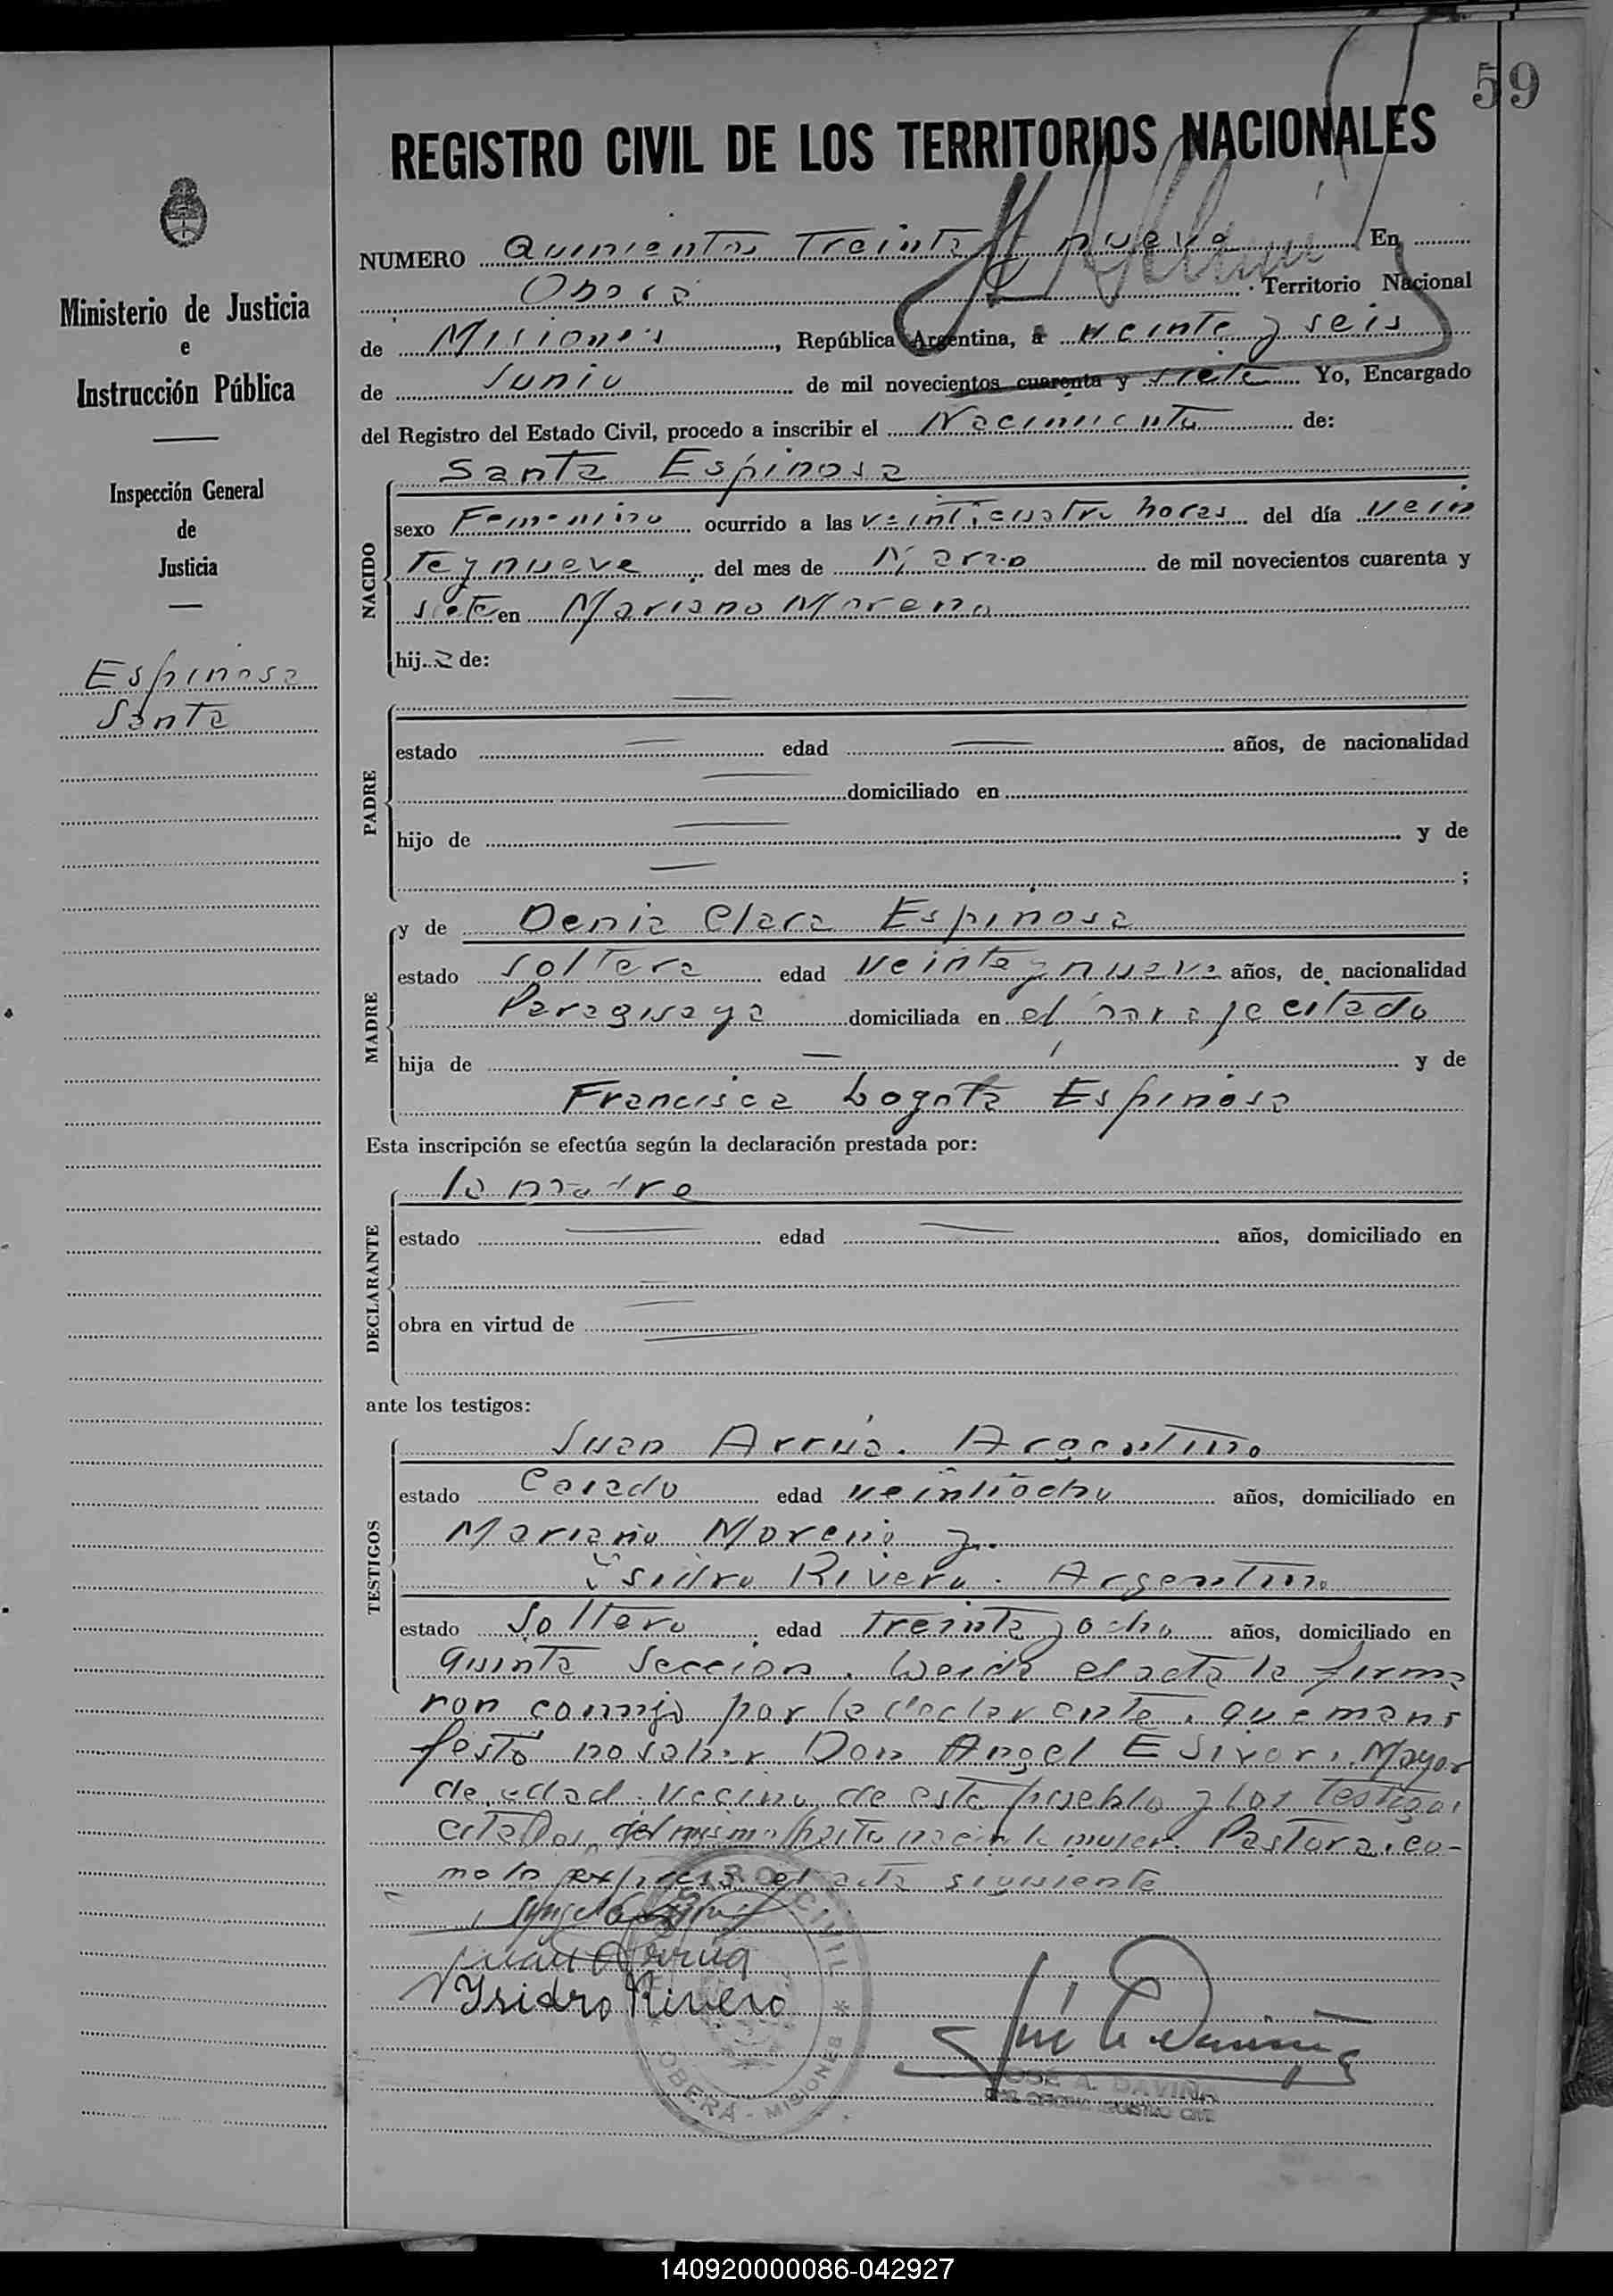 59
REGISTRO CIVIL DE LOS TERRITORIOS NACIONALES
NUMERO Quinientos Treinta y nueve En
Oberá Territorio Nacional
de Misiones, República Argentina, a veinte y seis
de Junio de mil novecientos cuarenta y siete Yo, Encargado
del Registro del Estado Civil, procedo a inscribir el Nacimiento de:
Ministerio de Justicia
e
Instrucción Pública
Inspección General
de
Justicia
Espinosa
Santa
NACIDO
Santa Espinosa
sexo Femenino ocurrido a las veinticuatro horas del día vein
te y nueve del mes de Marzo de mil novecientos cuarenta y
siete en Mariano Moreno
hija de:
PADRE
estado edad años, de nacionalidad
domiciliado en
hijo de y de
;
MADRE
y de Denia Clara Espinosa
estado soltera edad veinte y nueve años, de nacionalidad
Paraguaya domiciliada en el paraje citado
hija de y de
Francisca Logota Espinosa
Esta inscripción se efectúa según la declaración prestada por:
DECLARANTE
la madre
estado edad años, domiciliado en
obra en virtud de
ante los testigos:
TESTIGOS
Juan Arrúa. Argentino
estado Casado edad veintiocho años, domiciliado en
Mariano Moreno y.
Ysidro Rivero. Argentino
estado Soltero edad treinta y ocho años, domiciliado en
Quinta Sección. Leída el acta la firma
ron conmigo por la declarante, que mani
festó no saber Don Angel E
Mayor
de edad. Vecino de este pueblo y los testigos
citados, del mismo
la mujer Pastora, co-
mo lo expresa el acta siguiente
Juan Arrua
Ysidro Rivero
REGISTRO CIVIL
OBERÁ - MISIONES
JOSÉ A. DAVIÑA
140920000086-042927